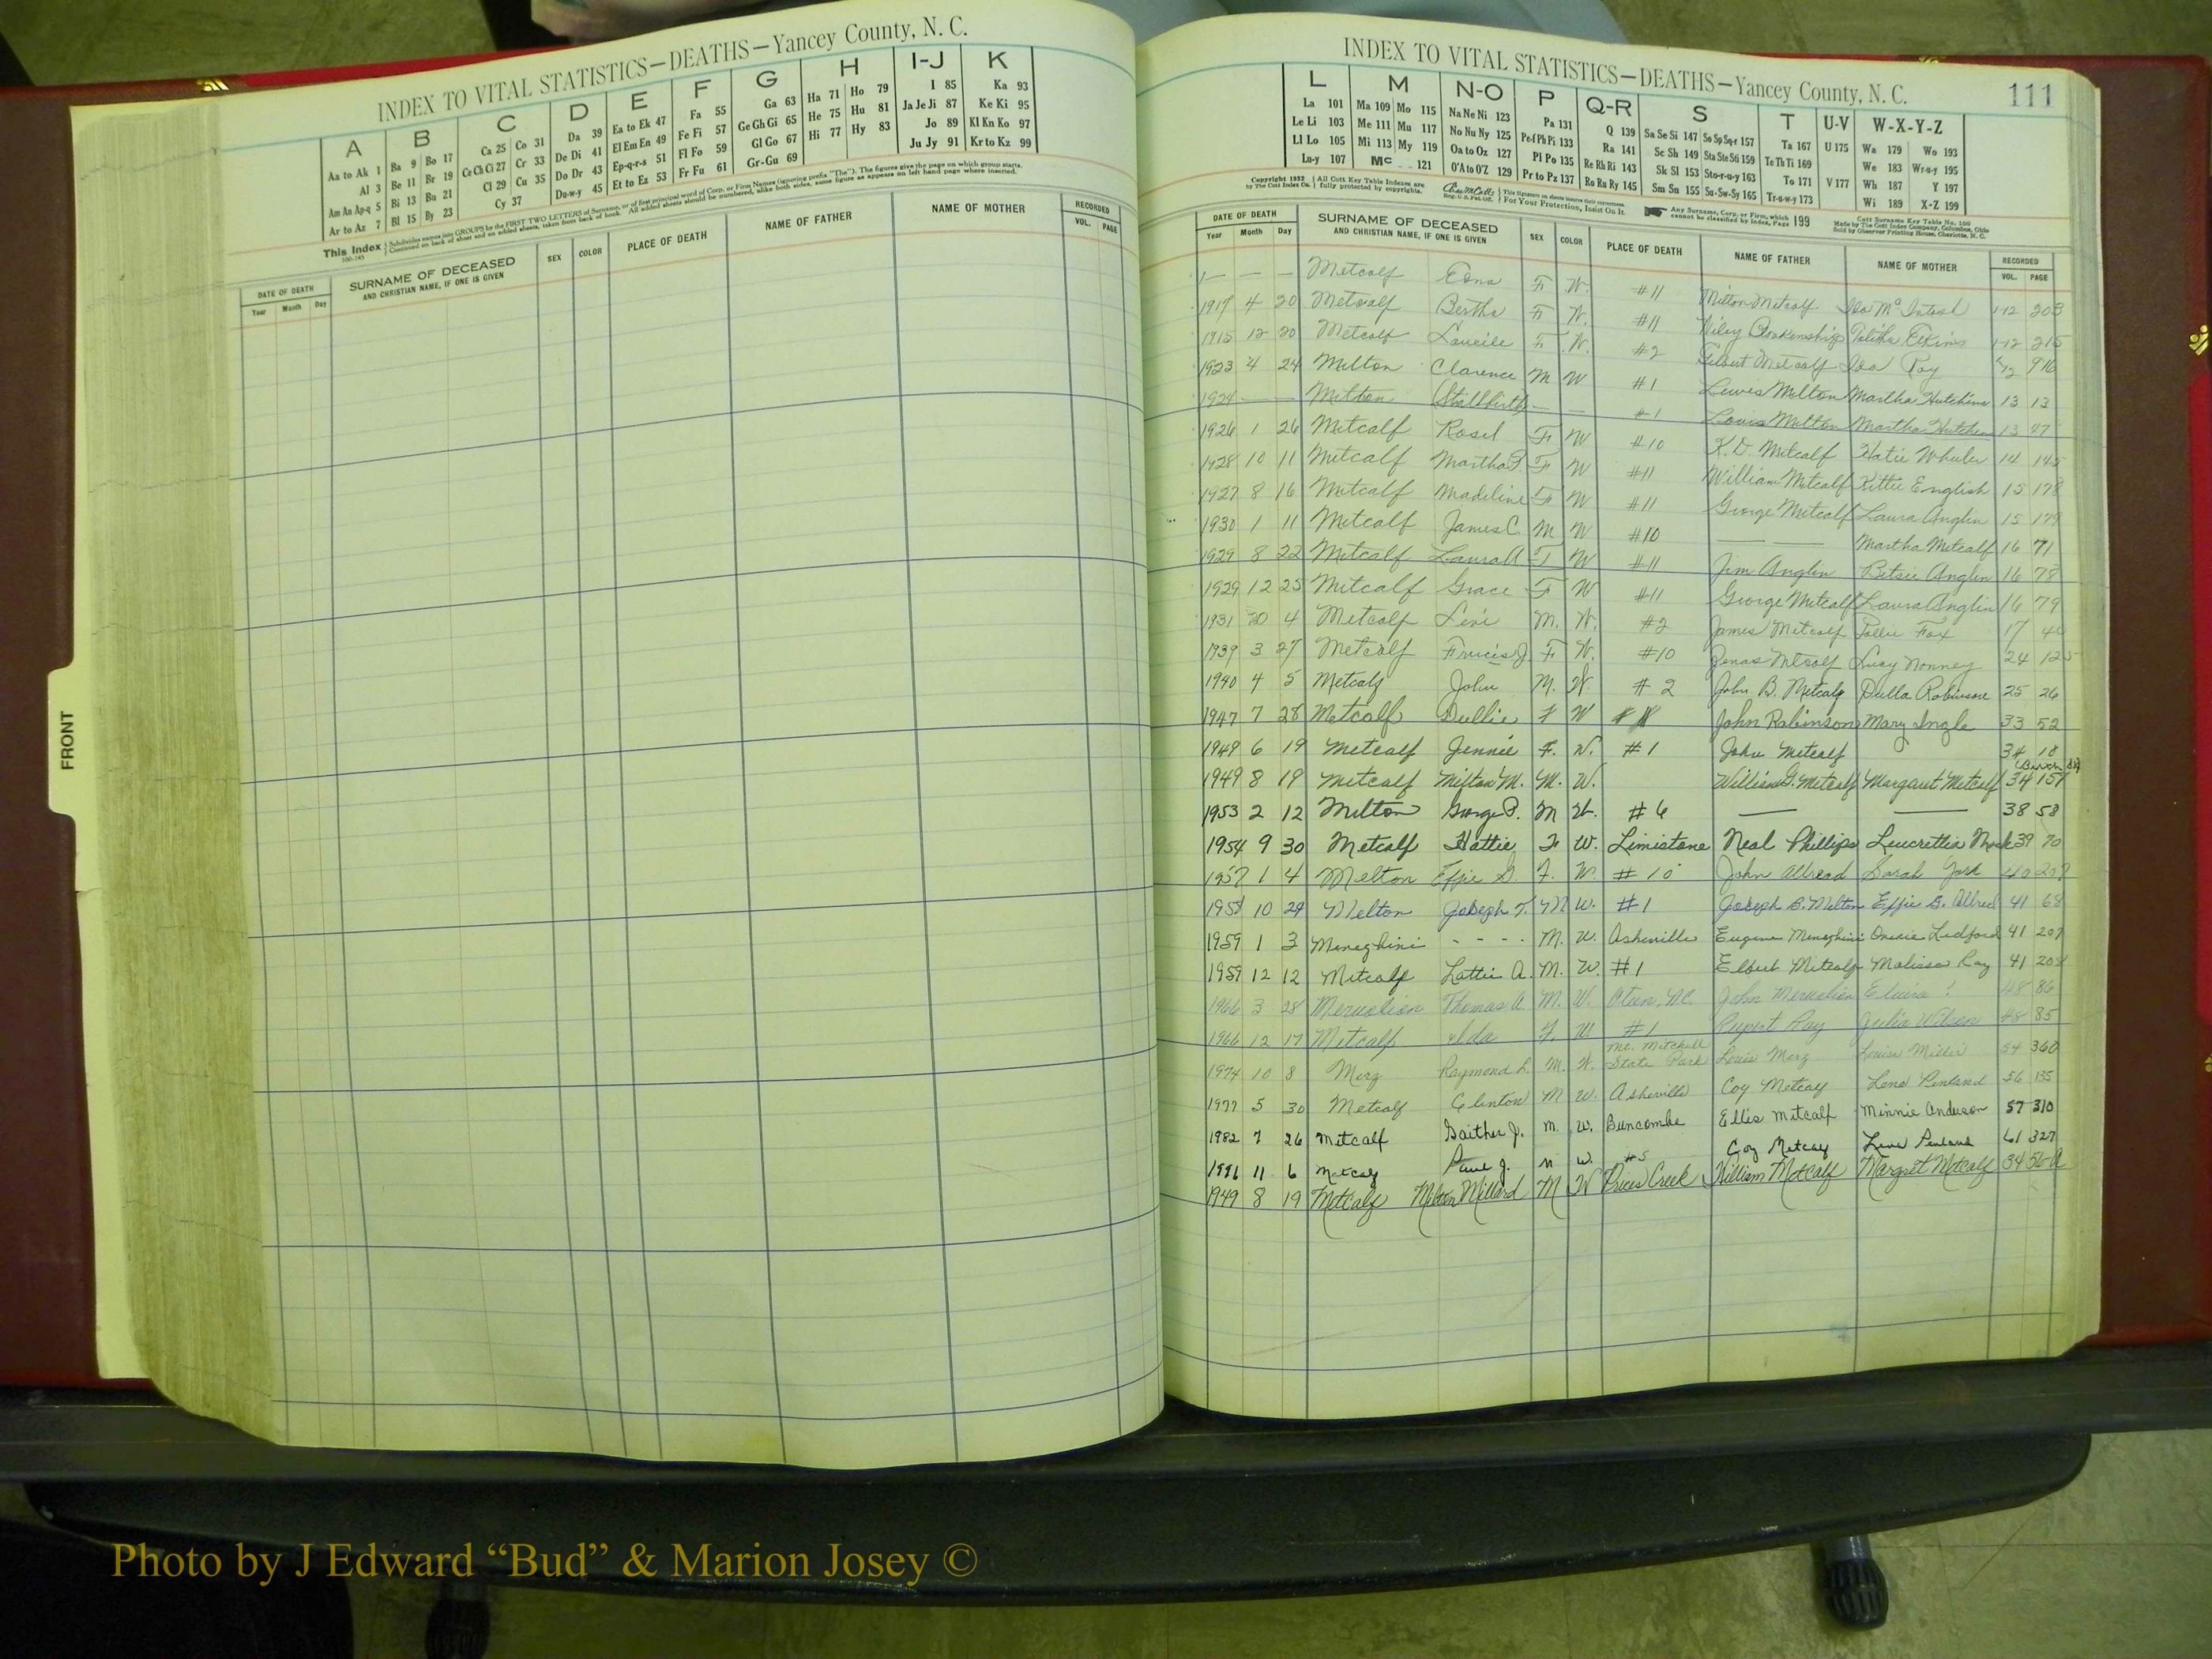 INDEX TO VITAL STATISTICS—DEATHS—Yancey County, N. C.
A B C D E F G H I-J K
Aa to Ak 1 Ba 9 Bo 17 Ca 25 Co 31 Da 39 Ea to Ek 47 Fa 55 Ga 63 Ha 71 Ho 79 I 85 Ka 93
Al 3 Be 11 Br 19 Ce Ch Ci 27 Cr 33 De Di 41 El Em En 49 Fe Fi 57 Ge Gh Gi 65 He 75 Hu 81 Ja Je Ji 87 Ke Ki 95
Am An Ap-q 5 Bi 13 Bu 21 Cl 29 Cu 35 Do Dr 43 Ep-q-r-s 51 Fl Fo 59 Gl Go 67 Hi 77 Hy 83 Jo 89 Kl Kn Ko 97
Ar to Az 7 Bl 15 By 23 Cy 37 Du-w-y 45 Et to Ez 53 Fr Fu 61 Gr-Gu 69 Ju Jy 91 Kr to Kz 99
This Index
DATE OF DEATH SURNAME OF DECEASED SEX COLOR PLACE OF DEATH NAME OF FATHER NAME OF MOTHER RECORDED
Year Month Day AND CHRISTIAN NAME, IF ONE IS GIVEN VOL. PAGE
FRONT
INDEX TO VITAL STATISTICS—DEATHS—Yancey County, N. C. 111
L M N-O P Q-R S T U-V W-X-Y-Z
La 101 Ma 109 Mo 115 Na Ne Ni 123 Pa 131 Q 139 Sa Se Si 147 So Sp Sq-r 157 Ta 167 U 175 Wa 179 Wo 193
Le Li 103 Me 111 Mu 117 No Nu Ny 125 Pe-f Ph Pi 133 Ra 141 Sc Sh 149 Sta Ste Sti 159 Te Th Ti 169 We 183 Wr-u-y 195
Ll Lo 105 Mi 113 My 119 Oa to Oz 127 Pl Po 135 Re Rh Ri 143 Sk Sl 153 Sto-r-u-y 163 To 171 V 177 Wh 187 Y 197
Lu-y 107 Mc 121 O'A to O'Z 129 Pr to Pz 137 Ro Ru Ry 145 Sm Sn 155 Su-Sw-Sy 165 Tr-u-w-y 173 Wi 189 X-Z 199
DATE OF DEATH SURNAME OF DECEASED SEX COLOR PLACE OF DEATH NAME OF FATHER NAME OF MOTHER RECORDED
Year Month Day AND CHRISTIAN NAME, IF ONE IS GIVEN VOL. PAGE
— — — Metcalf Edna F W. #11 Milton Metcalf Ida McIntosh 1-12 203
1917 4 20 Metcalf Bertha F W. #11 Wiley Blankenship Talitha Elkins 1-12 215
1915 12 20 Metcalf Luceile F W. #2 Elbert Metcalf Ida Ray 916
1923 4 24 Milton Clarence M W #1 Lewis Milton Martha Hutchins 13 13
1924 — — Milton (Stillbirth) — — #1 Louis Milton Martha Hutchins 13 47
1926 1 26 Metcalf Rosel F W #10 K.D. Metcalf Hatie Wheeler 14 145
1928 10 11 Metcalf Martha F W #11 William Metcalf Kittie English 15 178
1927 8 16 Metcalf Madeline F W #11 George Metcalf Laura Anglin 15 179
1930 1 11 Metcalf James C. M W #10 — — Martha Metcalf 16 71
1929 8 22 Metcalf Laura A F W #11 Jim Anglin Betsie Anglin 16 78
1929 12 25 Metcalf Grace F W #11 George Metcalf Laura Anglin 16 79
1931 4 Metcalf Levi M. W. #2 James Metcalf Pollie Fox 17
1939 3 27 Metcalf J. F W. #10 Jonas Metcalf Lucy Nonney 24 125
1940 4 5 Metcalf John M. W. #2 John B. Metcalf Dulla Robinson 25 26
1947 7 28 Metcalf Dullie F W John Robinson Mary Ingle 33 52
1949 6 19 Metcalf Jennie F. W. #1 John Metcalf 34 18
1949 8 19 Metcalf Milton M. M. W. William G. Metcalf Margaret Metcalf 34 157
1953 2 12 Milton George P. M W. #6 — — 38 58
1954 9 30 Metcalf Hattie F W. Limistone Neal Phillips Leucrettia 39 70
1957 1 4 Melton Effie G. F. W. #10 John Allread Sarah York 40 207
1958 10 29 Melton Joseph T. M W. #1 Joseph B. Milton Effie G. Allred 41 68
1959 1 3 Meneghini - - - - M. W. Asheville Eugene Meneghini Ledford 41 207
1959 12 12 Metcalf Lattie A. M. W. #1 Elbert Metcalf Malissa Ray 41 208
1966 3 28 Thomas A. M. W. Oteen, N.C. John Elvira ? 48 86
1966 12 17 Metcalf Ida F. W #1 Rupert Ray Julia Wilson 48 85
1974 10 8 Merz Raymond L. M. W. Mt. Mitchell State Park Louis Merz Louise Miller 54 360
1977 5 30 Metcalf Clinton M W. Asheville Coy Metcalf Lena Penland 56 135
1982 7 26 Metcalf Gaither J. M. W. Buncombe Ellis Metcalf Minnie Anderson 57 310
1991 11 6 Metcalf Paul J. M W. #5 Coy Metcalf Lena Penland 61 327
1949 8 19 Metcalf Milton Millard M W Prices Creek William Metcalf Margret Metcalf 34 56-A
Photo by J Edward “Bud” & Marion Josey ©